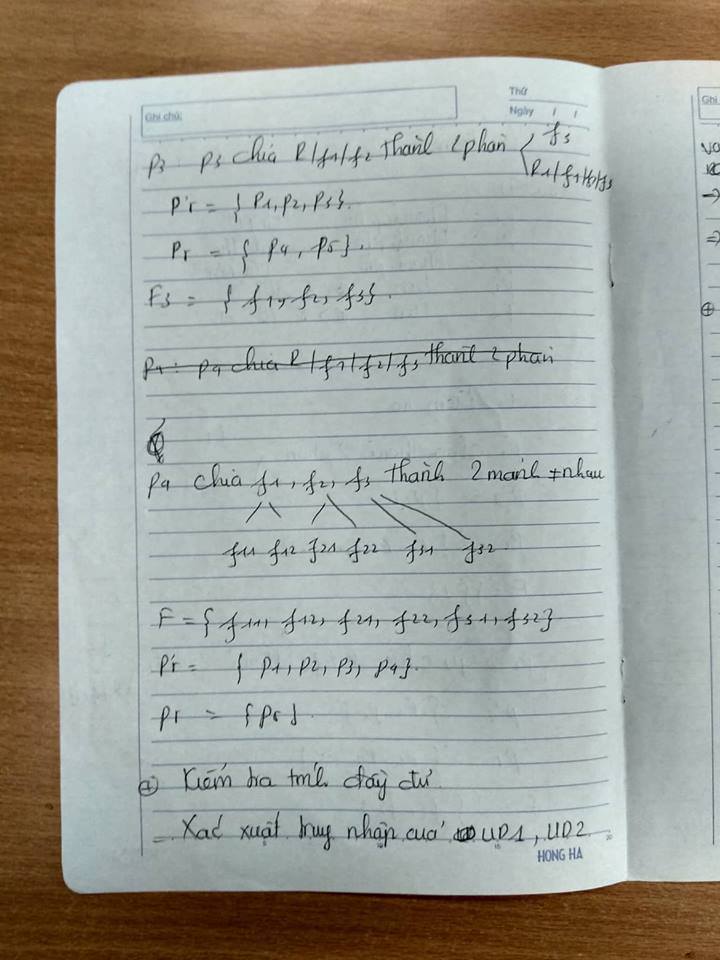 Ghi chú:
Thứ
Ngày / /
P3 P3 chia R/f1/f2 thành 2 phần f3
R1/f1/f2/f3
P'r = { P1, P2, P3}.
Pr = { P4, P5}.
F3 = { f1, f2, f3}.
P4: P4 chia R/f1/f2/f3 thành 2 phần
P4 chia f1, f2, f3 thành 2 mảnh ≠ nhau
f11 f12 f21 f22 f31 f32
F = { f11, f12, f21, f22, f31, f32}
P'r = { P1, P2, P3, P4}.
Pr = {P5}.
⊕ Kiểm tra tính đầy đủ
- Xác xuất truy nhập của UD1, UD2.
HONG HA
Ghi
→
⇒
⊕